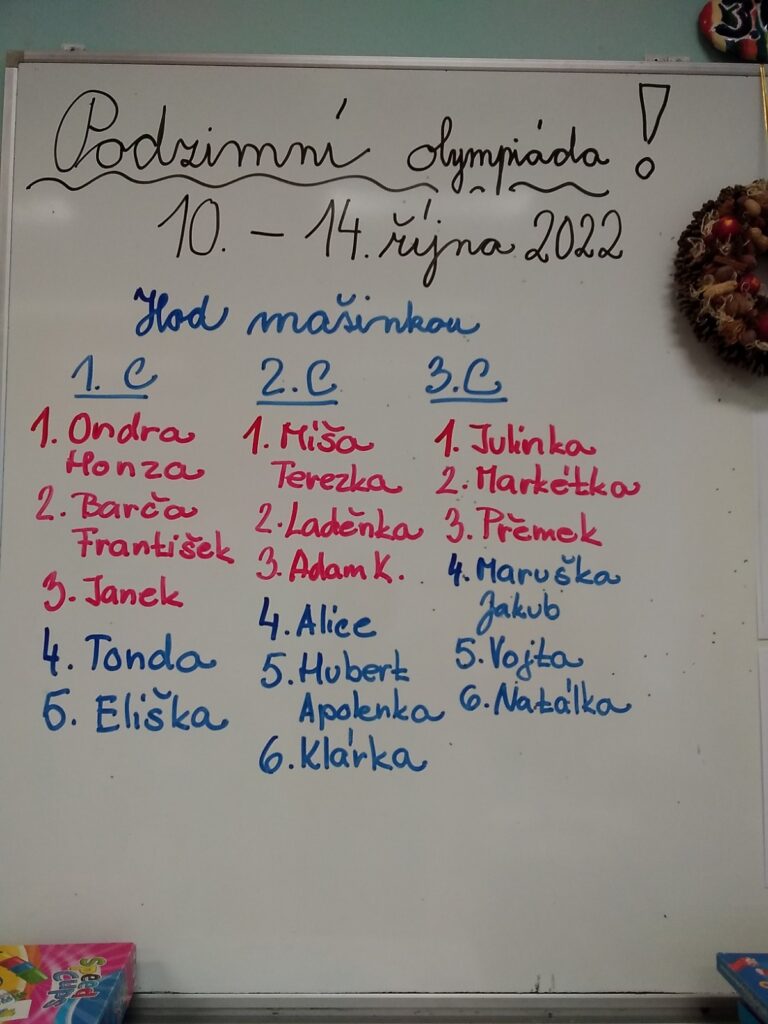 Podzimní olympiáda!
10. – 14. října 2022
Hod mašinkou
1. C
1. Ondra
Honza
2. Barča
František
3. Janek
4. Tonda
5. Eliška
2. C
1. Míša
Terezka
2. Laděnka
3. Adam K.
4. Alice
5. Hubert
Apolenka
6. Klárka
3. C
1. Julinka
2. Markétka
3. Přemek
4. Maruška
Jakub
5. Vojta
6. Natálka
Speed
Cups
3.